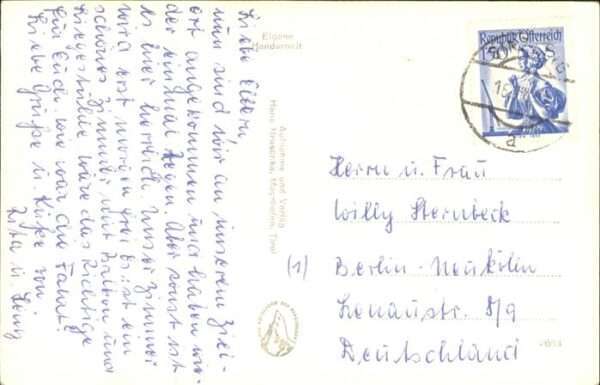 Liebe Eltern
nun sind wir an unserem Ziel-
ort angekommen und haben wie-
der einmal Regen. Aber sonst ist
es hier herrlich. Unser Zimmer
wird erst morgen frei es ist ein
schönes Zimmer mit Balkon und
Liegestühle wäre das Richtige
für Euch. wie war die Fahrt?
Liebe Grüße u. Küße von
u.
Eigene
Handarbeit
Aufnahme und Verlag
Hans Hruschka, Mayrhofen, Tirol
Republik Österreich
a
Herrn u. Frau
Willy Sternbeck
(1) Berlin-Neukölln
Lenaustr. 8/9
Deutschland